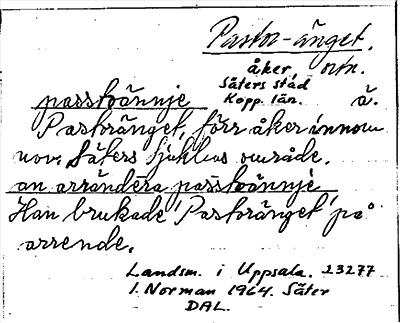 Pastor-änget.
åker, ortn.
Säters stad
Kopp. län.
passtoännje ä.
Pastoränget, förr åker inom
nuv. Säters sjukhus område.
an arrändera passtoännje
Han brukade Pastoränget på
arrende.
Landsm. i Uppsala. 23277
I. Norman 1964. Säter
DAL.